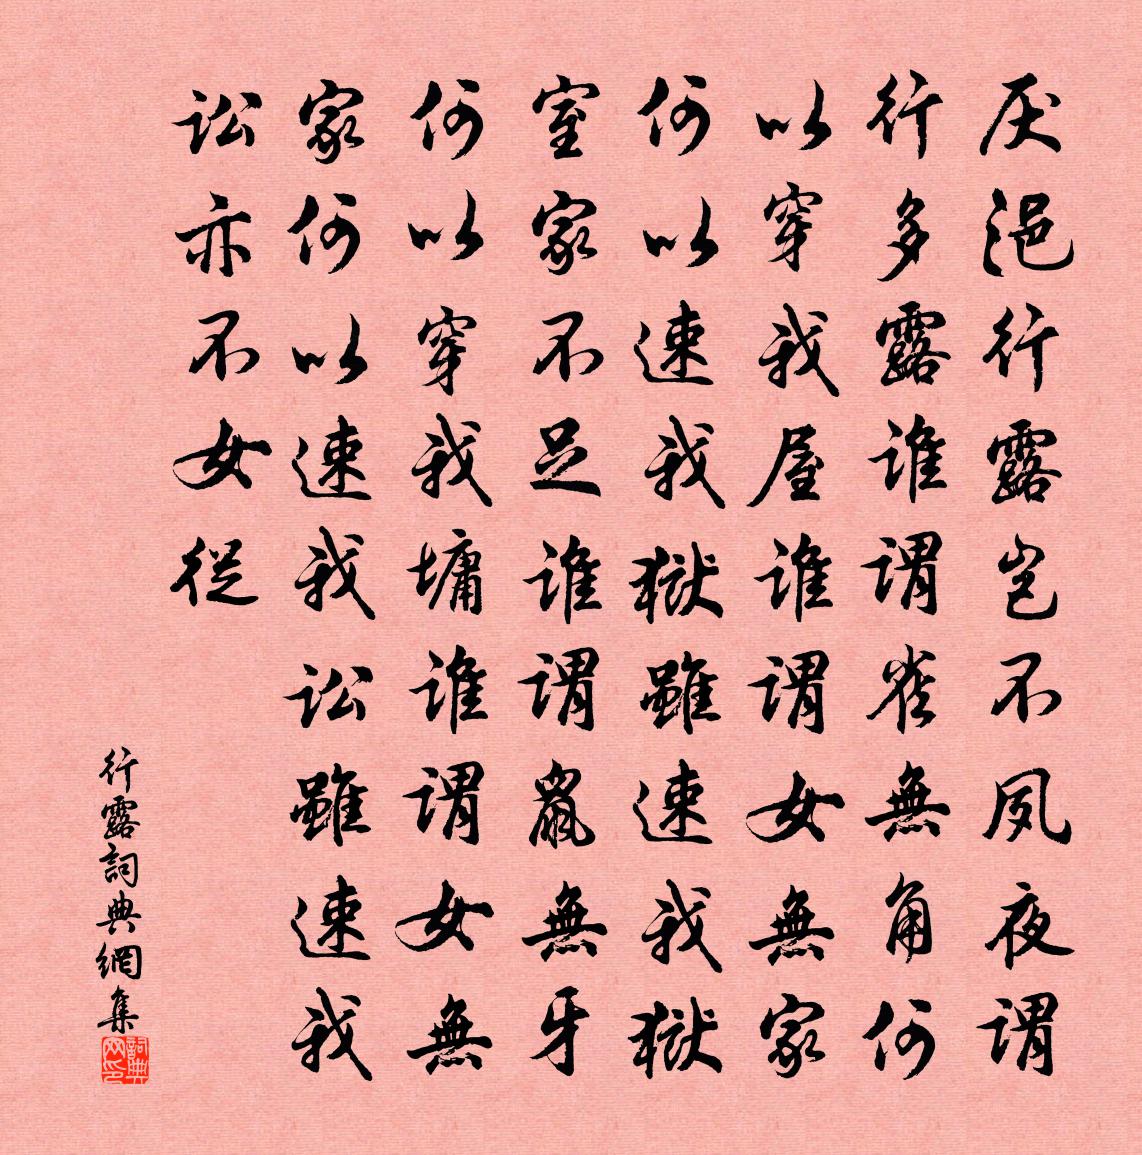 厌浥行露岂不夙夜谓
行多露谁谓雀無角何
以穿我屋谁谓女無家
何以速我獄雖速我獄
室家不足谁谓鼠無牙
何以穿我墉谁谓女無
家何以速我讼雖速我
讼亦不女從
行露詞典網集
詞典
网印